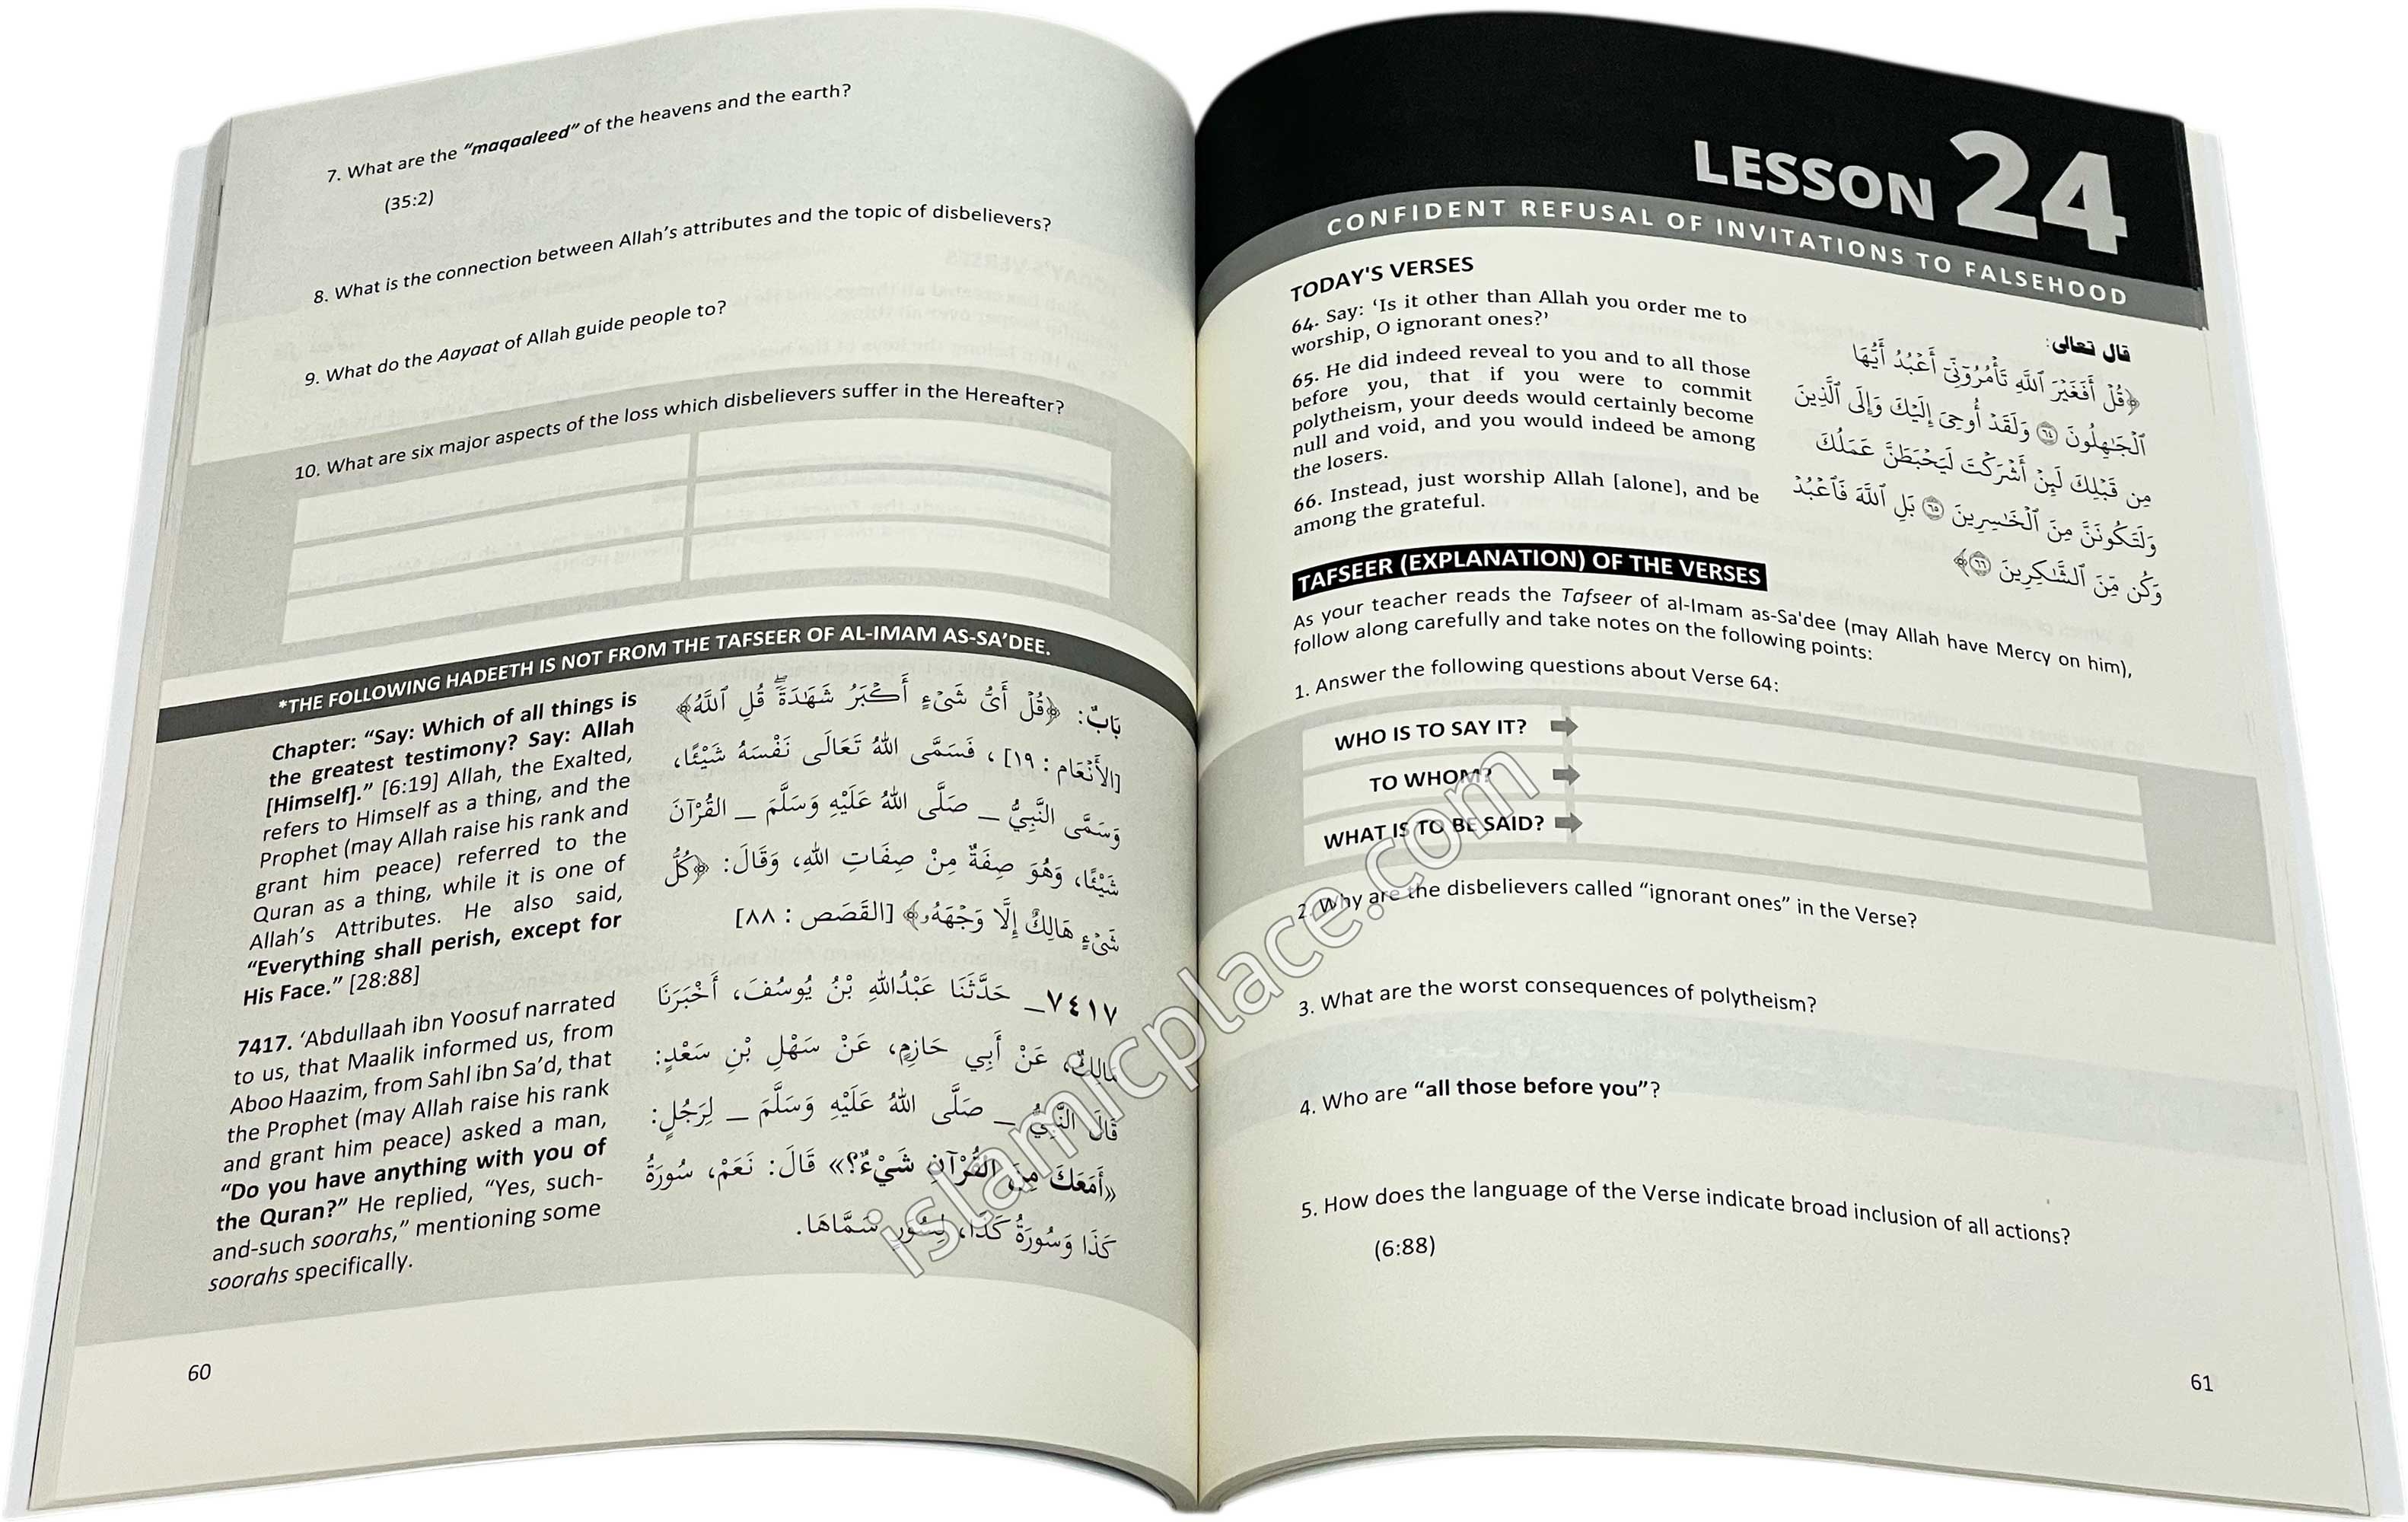 7. What are the “maqaaleed” of the heavens and the earth?
(35:2)
8. What is the connection between Allah’s attributes and the topic of disbelievers?
9. What do the Aayaat of Allah guide people to?
10. What are six major aspects of the loss which disbelievers suffer in the Hereafter?
*THE FOLLOWING HADEETH IS NOT FROM THE TAFSEER OF AL-IMAM AS-SA’DEE.
Chapter: “Say: Which of all things is
the greatest testimony? Say: Allah
[Himself].” [6:19] Allah, the Exalted,
refers to Himself as a thing, and the
Prophet (may Allah raise his rank and
grant him peace) referred to the
Quran as a thing, while it is one of
Allah’s Attributes. He also said,
“Everything shall perish, except for
His Face.” [28:88]
7417. ‘Abdullaah ibn Yoosuf narrated
to us, that Maalik informed us, from
Aboo Haazim, from Sahl ibn Sa’d, that
the Prophet (may Allah raise his rank
and grant him peace) asked a man,
“Do you have anything with you of
the Quran?” He replied, “Yes, such-
and-such soorahs,” mentioning some
soorahs specifically.
بَابٌ: ﴿قُلْ أَىُّ شَىْءٍ أَكْبَرُ شَهَٰدَةً ۖ قُلِ ٱللَّهُ﴾
[الأَنْعَام : ١٩] ، فَسَمَّى اللهُ تَعَالَى نَفْسَهُ شَيْئًا،
وَسَمَّى النَّبِيُّ _ صَلَّى اللهُ عَلَيْهِ وَسَلَّمَ _ القُرْآنَ
شَيْئًا، وَهُوَ صِفَةٌ مِنْ صِفَاتِ اللهِ، وَقَالَ: ﴿كُلُّ
شَىْءٍ هَالِكٌ إِلَّا وَجْهَهُۥ﴾ [القَصَص : ٨٨]
٧٤١٧_ حَدَّثَنَا عَبْدُاللهِ بْنُ يُوسُفَ، أَخْبَرَنَا
مَالِكٌ، عَنْ أَبِي حَازِمٍ، عَنْ سَهْلِ بْنِ سَعْدٍ:
قَالَ النَّبِيُّ _ صَلَّى اللهُ عَلَيْهِ وَسَلَّمَ _ لِرَجُلٍ:
«أَمَعَكَ مِنَ القُرْآنِ شَيْءٌ؟» قَالَ: نَعَمْ، سُورَةُ
كَذَا وَسُورَةُ كَذَا، لِسُوَرٍ سَمَّاهَا.
60
LESSON 24
CONFIDENT REFUSAL OF INVITATIONS TO FALSEHOOD
TODAY'S VERSES
64. Say: ‘Is it other than Allah you order me to
worship, O ignorant ones?’
65. He did indeed reveal to you and to all those
before you, that if you were to commit
polytheism, your deeds would certainly become
null and void, and you would indeed be among
the losers.
66. Instead, just worship Allah [alone], and be
among the grateful.
قال تعالى:
﴿قُلْ أَفَغَيْرَ ٱللَّهِ تَأْمُرُوٓنِّىٓ أَعْبُدُ أَيُّهَا
ٱلْجَٰهِلُونَ ٦٤ وَلَقَدْ أُوحِىَ إِلَيْكَ وَإِلَى ٱلَّذِينَ
مِن قَبْلِكَ لَئِنْ أَشْرَكْتَ لَيَحْبَطَنَّ عَمَلُكَ
وَلَتَكُونَنَّ مِنَ ٱلْخَٰسِرِينَ ٦٥ بَلِ ٱللَّهَ فَٱعْبُدْ
وَكُن مِّنَ ٱلشَّٰكِرِينَ ٦٦﴾
TAFSEER (EXPLANATION) OF THE VERSES
As your teacher reads the Tafseer of al-Imam as-Sa'dee (may Allah have Mercy on him),
follow along carefully and take notes on the following points:
1. Answer the following questions about Verse 64:
WHO IS TO SAY IT?
TO WHOM?
WHAT IS TO BE SAID?
2. Why are the disbelievers called “ignorant ones” in the Verse?
3. What are the worst consequences of polytheism?
4. Who are “all those before you”?
5. How does the language of the Verse indicate broad inclusion of all actions?
(6:88)
61
islamicplace.com